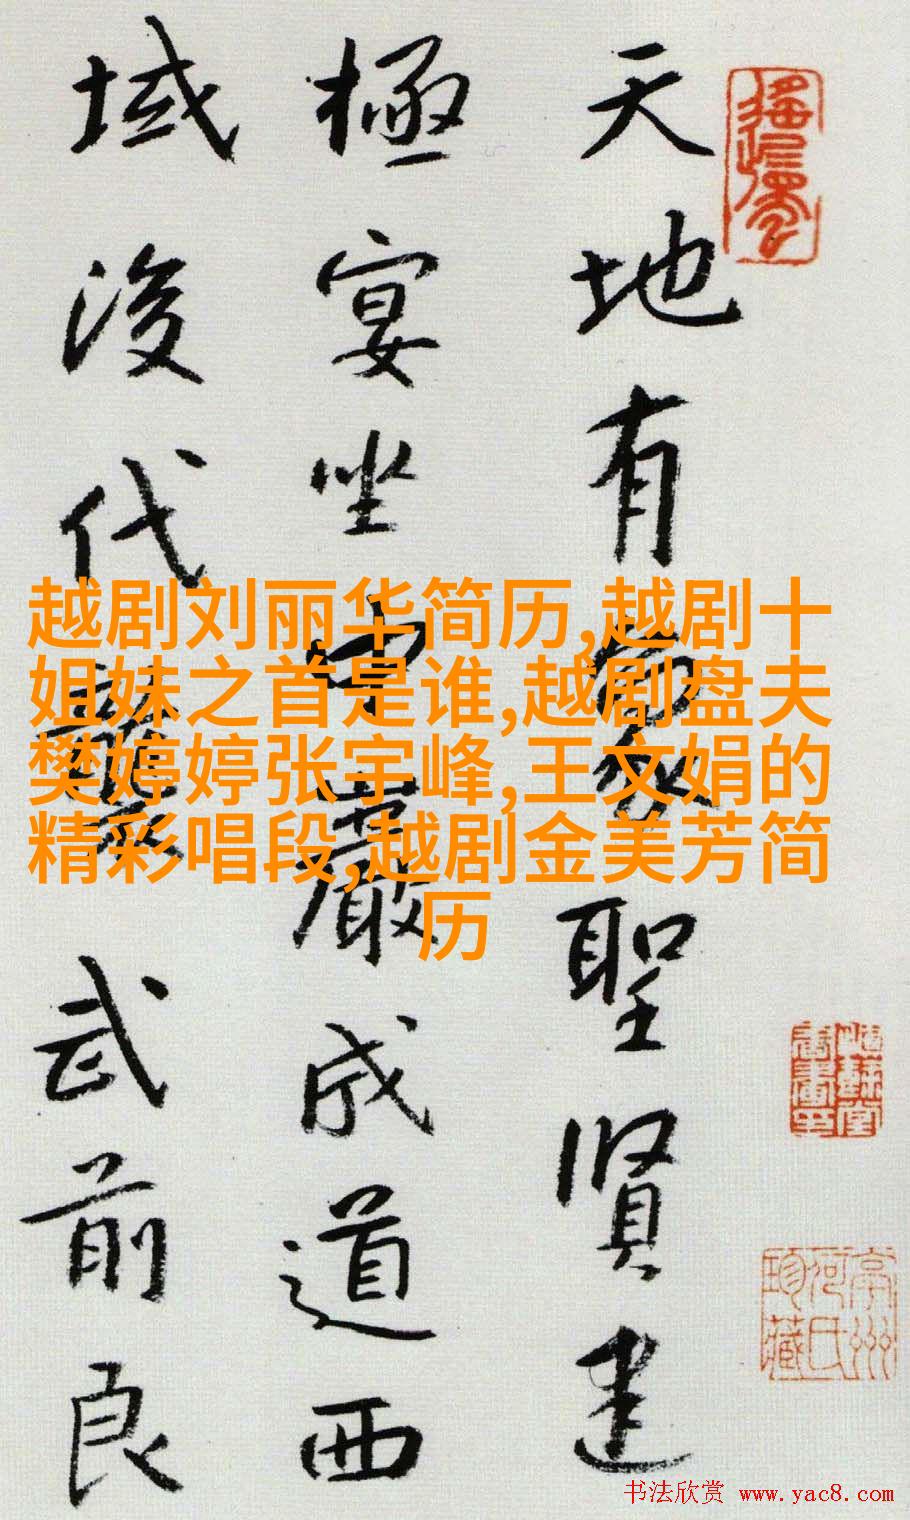 天地有聖賢建
極宴坐中嚴成道西
域後代武前良
越剧刘丽华简历,越剧十
姐妹之首是谁,越剧盘夫
樊婷婷张宇峰,王文娟的
精彩唱段,越剧金美芳简
历
珍藏
书法欣赏 www.yac8.com